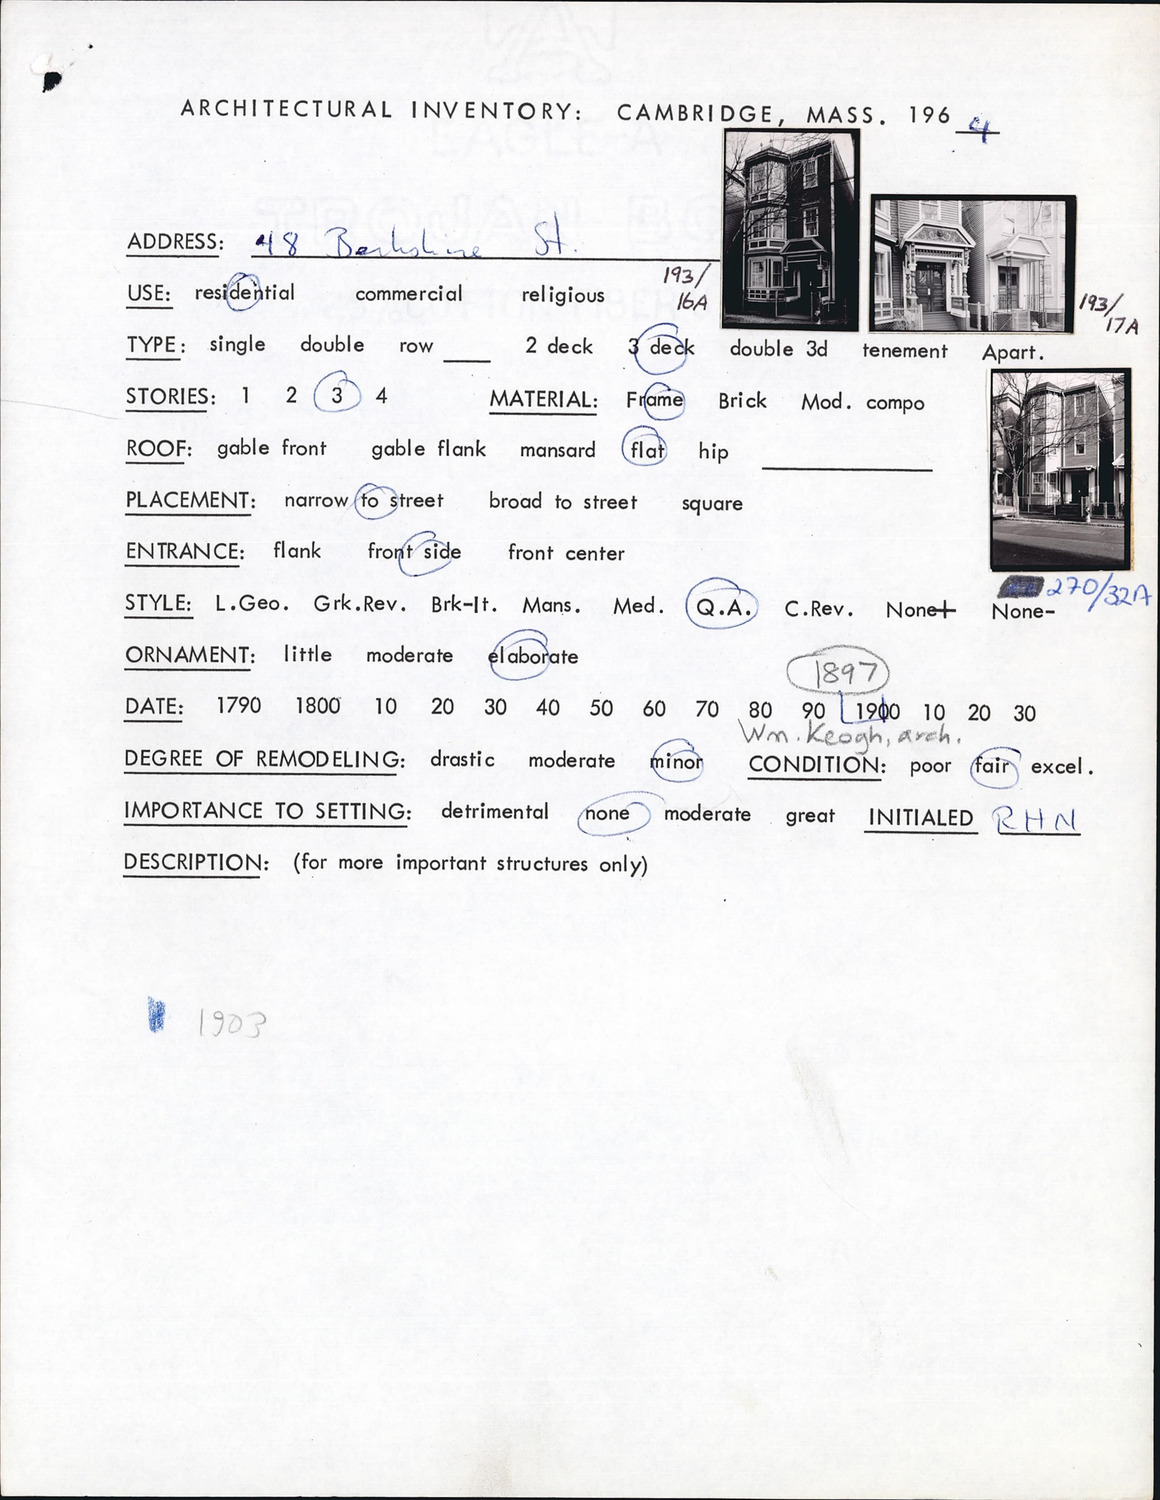 ARCHITECTURAL INVENTORY: CAMBRIDGE, MASS. 1964
ADDRESS: 48 Berkshire St.
193/
16A
193/
17A
USE: residential commercial religious
TYPE: single double row ____ 2 deck 3 deck double 3d tenement Apart.
STORIES: 1 2 3 4 MATERIAL: Frame Brick Mod. compo
ROOF: gable front gable flank mansard flat hip ____
PLACEMENT: narrow to street broad to street square
ENTRANCE: flank front side front center
270/32A
STYLE: L.Geo. Grk.Rev. Brk-It. Mans. Med. Q.A. C.Rev. None+ None-
ORNAMENT: little moderate elaborate
1897
DATE: 1790 1800 10 20 30 40 50 60 70 80 90 1900 10 20 30
Wm. Keogh, arch.
DEGREE OF REMODELING: drastic moderate minor CONDITION: poor fair excel.
IMPORTANCE TO SETTING: detrimental none moderate great INITIALED RHN
DESCRIPTION: (for more important structures only)
1903